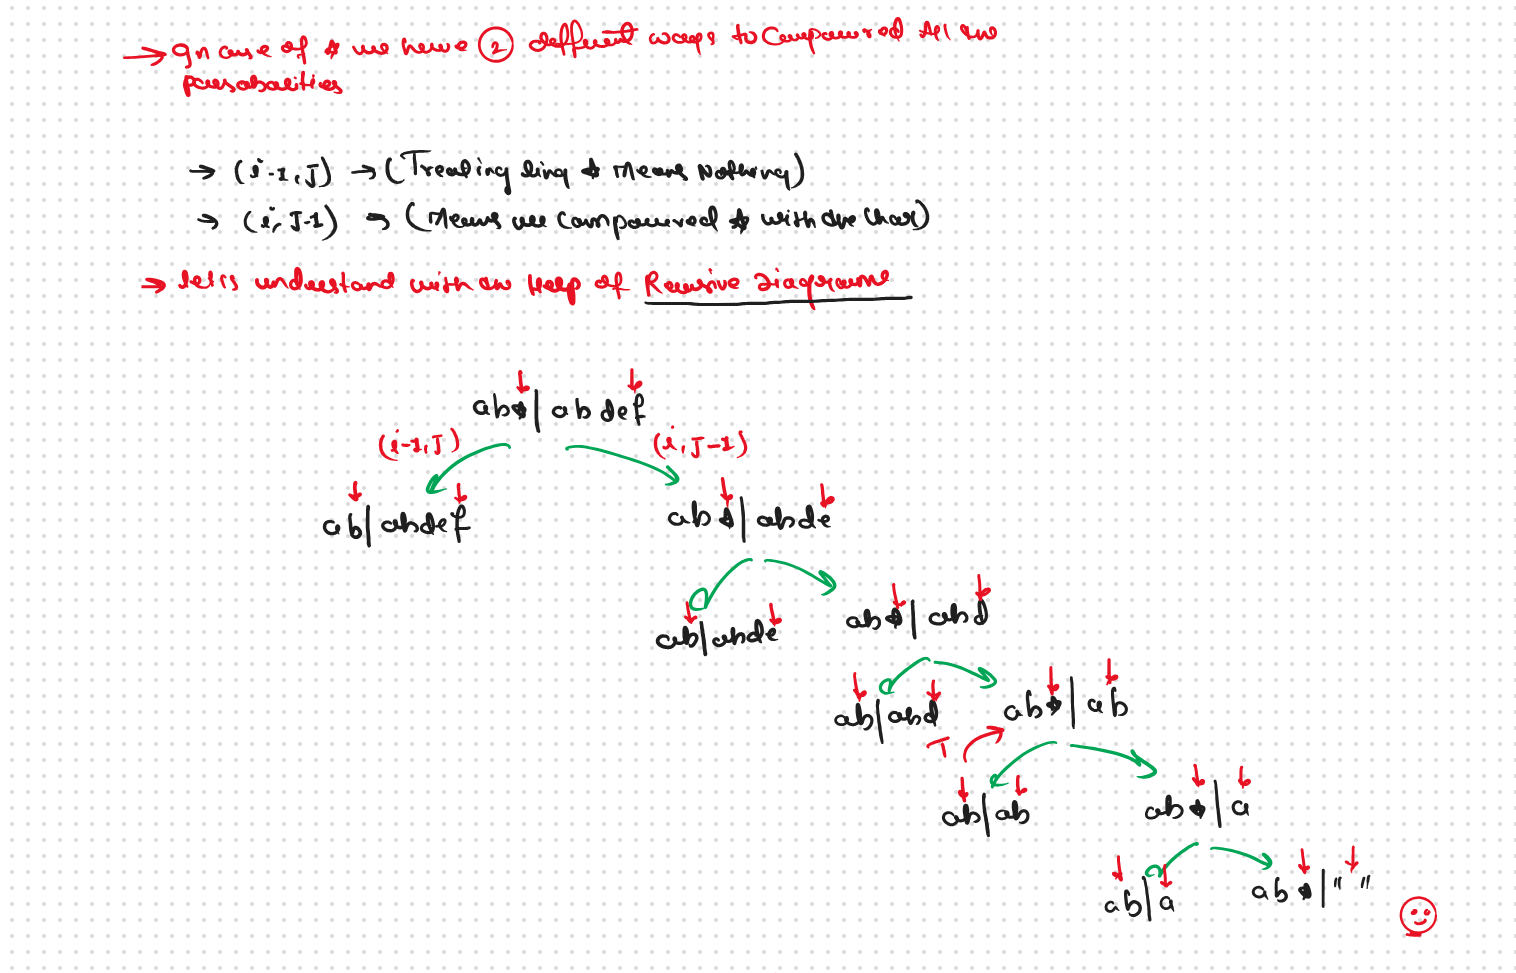 → In case of * we have ② different ways to Compared All the
possabalities
→ (i-1, J) → (Treating *  Means Nothing)
→ (i, J-1) → (Means we Compared * with the Char)
→ let's understand with the Help of Recursive Diagrams
ab* | abdef
(i-1, J) (i, J-1)
ab | abdef ab* | abde
ab | abde ab* | abd
ab | abd ab* | ab
T
ab | ab ab* | a
ab | a ab* | " "